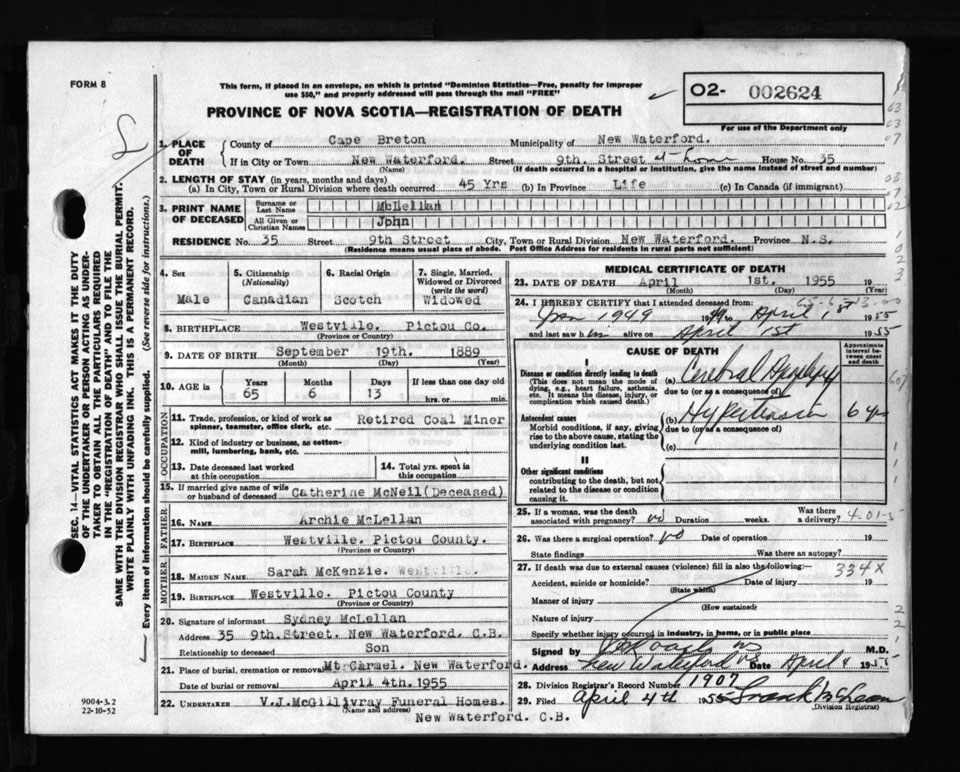 FORM 8
This form, if placed in an envelope, on which is printed "Dominion Statistics—Free, penalty for improper
use $50," and properly addressed will pass through the mail "FREE"
O2- 002624
For use of the Department only
PROVINCE OF NOVA SCOTIA—REGISTRATION OF DEATH
1. PLACE OF DEATH
County of Cape Breton Municipality of New Waterford.
If in City or Town New Waterford. Street 9th. Street at home House No. 35
(Name) (If death occurred in a hospital or institution, give the name instead of street and number)
2. LENGTH OF STAY (in years, months and days)
(a) In City, Town or Rural Division where death occurred 45 Yrs (b) In Province Life (c) In Canada (if immigrant)
3. PRINT NAME OF DECEASED
Surname or Last Name McLellan
All Given or Christian Names John
RESIDENCE No. 35 Street 9th Street City, Town or Rural Division New Waterford. Province N.S.
(Residence means usual place of abode. Post Office Address for residents in rural parts not sufficient)
4. Sex
Male
5. Citizenship
(Nationality)
Canadian
6. Racial Origin
Scotch
7. Single, Married,
Widowed or Divorced
(write the word)
Widowed
8. BIRTHPLACE Westville. Pictou Co.
(Province or Country)
9. DATE OF BIRTH September 19th. 1889
(Month) (Day) (Year)
10. AGE in
Years 65
Months 6
Days 13
If less than one day old
hrs. or min.
OCCUPATION
11. Trade, profession, or kind of work as
spinner, teamster, office clerk, etc. Retired Coal Miner
12. Kind of industry or business, as cotton-
mill, lumbering, bank, etc.
13. Date deceased last worked
at this occupation
14. Total yrs. spent in
this occupation
15. If married give name of wife
or husband of deceased Catherine McNeil(Deceased)
FATHER
16. NAME Archie McLellan
17. BIRTHPLACE Westville. Pictou County.
(Province or Country)
MOTHER
18. MAIDEN NAME Sarah McKenzie. Westville.
19. BIRTHPLACE Westville. Pictou County
(Province or Country)
20. Signature of informant Sydney McLellan
Address 35 9th.Street. New Waterford. C.B.
Relationship to deceased Son
21. Place of burial, cremation or removal Mt Carmel. New Waterford.
Date of burial or removal April 4th.1955
22. UNDERTAKER V.J.McGillivray Funeral Homes.
(Name and address)
New Waterford. C.B.
MEDICAL CERTIFICATE OF DEATH
23. DATE OF DEATH April 1st. 1955 19
(Month) (Day) (Year)
24. I HEREBY CERTIFY that I attended deceased from:
1949 to April 1st 1955
and last saw him alive on April 1st 1955
CAUSE OF DEATH
Approximate
interval be-
tween onset
and death
I
Disease or condition directly leading to death
(This does not mean the mode of
dying, e.g., heart failure, asthenia,
etc. It means the disease, injury, or
complication which caused death.)
(a) Cerebral
due to (or as a consequence of)
Antecedent causes
Morbid conditions, if any, giving
rise to the above cause, stating the
underlying condition last.
(b) Hypertension 6 yrs
due to (or as a consequence of)
(c)
II
Other significant conditions
contributing to the death, but not
related to the disease or condition
causing it.
25. If a woman, was the death
associated with pregnancy? no Duration weeks. Was there
a delivery?
4-01-5
26. Was there a surgical operation? no Date of operation 19
State findings Was there an autopsy?
27. If death was due to external causes (violence) fill in also the following:—
334X
Accident, suicide or homicide? Date of injury 19
(State which)
Manner of injury
(How sustained)
Nature of injury
Specify whether injury occurred in industry, in home, or in public place
Signed by M.D.
Address New Waterford NS Date April 4 1955
28. Division Registrar's Record Number 1907
29. Filed April 4th 1955
(Division Registrar)
SEC. 14—VITAL STATISTICS ACT MAKES IT THE DUTY
OF THE UNDERTAKER OR PERSON ACTING AS UNDER-
TAKER TO OBTAIN ALL THE PARTICULARS REQUIRED
IN THE "REGISTRATION OF DEATH" AND TO FILE THE
SAME WITH THE DIVISION REGISTRAR WHO SHALL ISSUE THE BURIAL PERMIT.
WRITE PLAINLY WITH UNFADING INK. THIS IS A PERMANENT RECORD.
Every item of information should be carefully supplied. (See reverse side for instructions.)
9004-3.2
22-10-52